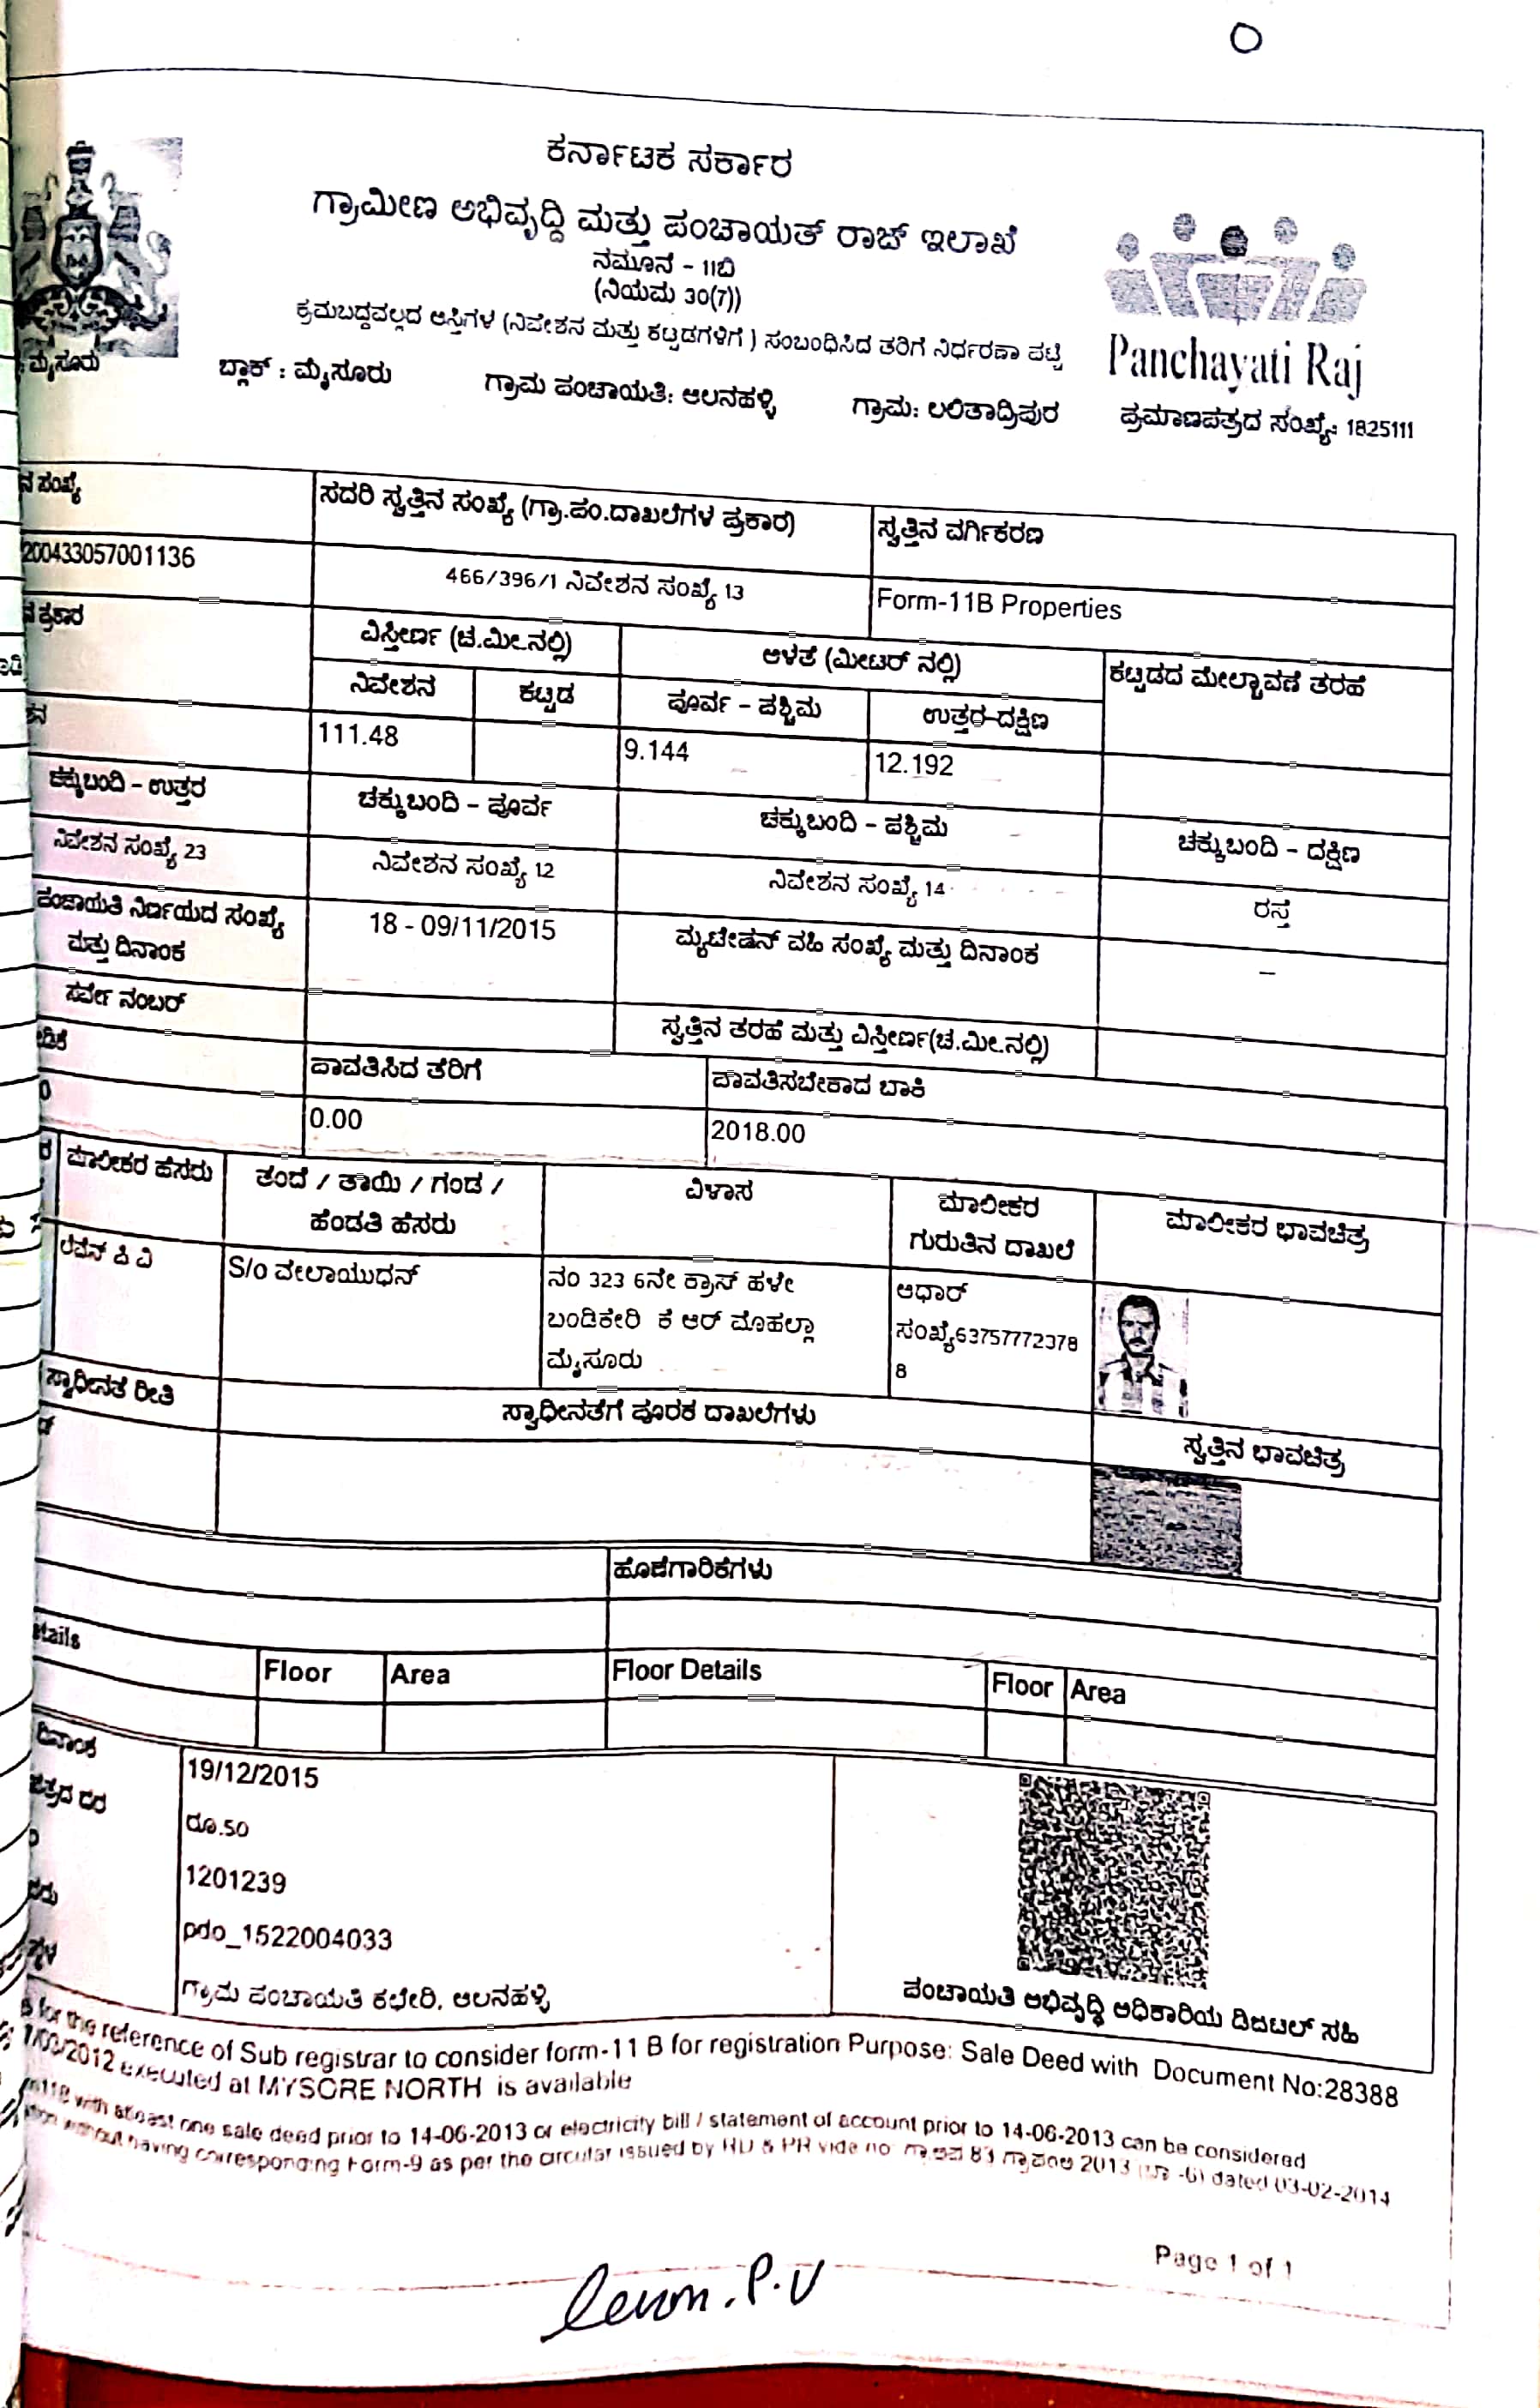 ಕರ್ನಾಟಕ ಸರ್ಕಾರ
ಗ್ರಾಮೀಣ ಅಭಿವೃದ್ದಿ ಮತ್ತು ಪಂಚಾಯತ್ ರಾಜ್ ಇಲಾಖೆ
ನಮೂನೆ - 11ಬಿ
(ನಿಯಮ 30(7))
ಕ್ರಮಬದ್ದವಲ್ಲದ ಆಸ್ತಿಗಳ (ನಿವೇಶನ ಮತ್ತು ಕಟ್ಟಡಗಳಿಗೆ ) ಸಂಬಂಧಿಸಿದ ತರಿಗೆ ನಿರ್ಧರಣಾ ಪಟ್ಟಿ
Panchayati Raj
: ಮೈಸೂರು ಬ್ಲಾಕ್ : ಮೈಸೂರು ಗ್ರಾಮ ಪಂಚಾಯತಿ: ಆಲನಹಳ್ಳಿ ಗ್ರಾಮ: ಲಲಿತಾದ್ರಿಪುರ ಪ್ರಮಾಣಪತ್ರದ ಸಂಖ್ಯೆ: 1825111
ನ ಸಂಖ್ಯೆ ಸದರಿ ಸ್ವತ್ತಿನ ಸಂಖ್ಯೆ (ಗ್ರಾ.ಪಂ.ದಾಖಲೆಗಳ ಪ್ರಕಾರ) ಸ್ವತ್ತಿನ ವರ್ಗೀಕರಣ
200433057001136 466/396/1 ನಿವೇಶನ ಸಂಖ್ಯೆ 13 Form-11B Properties
ಪ್ರಕಾರ ವಿಸ್ತೀರ್ಣ (ಚ.ಮೀ.ನಲ್ಲಿ) ಅಳತೆ (ಮೀಟರ್ ನಲ್ಲಿ) ಕಟ್ಟಡದ ಮೇಲ್ಚಾವಣಿ ತರಹೆ
ನಿವೇಶನ ಕಟ್ಟಡ ಪೂರ್ವ - ಪಶ್ಚಿಮ ಉತ್ತರ-ದಕ್ಷಿಣ
111.48 9.144 12.192
ಚಕ್ಕುಬಂದಿ - ಉತ್ತರ ಚಕ್ಕುಬಂದಿ - ಪೂರ್ವ ಚಕ್ಕುಬಂದಿ - ಪಶ್ಚಿಮ ಚಕ್ಕುಬಂದಿ - ದಕ್ಷಿಣ
ನಿವೇಶನ ಸಂಖ್ಯೆ 23 ನಿವೇಶನ ಸಂಖ್ಯೆ 12 ನಿವೇಶನ ಸಂಖ್ಯೆ 14 ರಸ್ತೆ
ಪಂಚಾಯತಿ ನಿರ್ಣಯದ ಸಂಖ್ಯೆ 18 - 09/11/2015 ಮ್ಯುಟೇಷನ್ ವಹಿ ಸಂಖ್ಯೆ ಮತ್ತು ದಿನಾಂಕ –
ಮತ್ತು ದಿನಾಂಕ
ಸರ್ವೇ ನಂಬರ್ ಸ್ವತ್ತಿನ ತರಹೆ ಮತ್ತು ವಿಸ್ತೀರ್ಣ(ಚ.ಮೀ.ನಲ್ಲಿ)
ಪಾವತಿಸಿದ ತೆರಿಗೆ ಪಾವತಿಸಬೇಕಾದ ಬಾಕಿ
0.00 2018.00
ಮಾಲೀಕರ ಹೆಸರು ತಂದೆ / ತಾಯಿ / ಗಂಡ / ವಿಳಾಸ ಮಾಲೀಕರ ಮಾಲೀಕರ ಭಾವಚಿತ್ರ
ಹೆಂಡತಿ ಹೆಸರು ಗುರುತಿನ ದಾಖಲೆ
ಲೆವನ್ ಪಿ ವಿ S/o ವೇಲಾಯುಧನ್ ನಂ 323 6ನೇ ಕ್ರಾಸ್ ಹಳೇ ಆಧಾರ್
ಬಂಡಿಕೇರಿ ಕೆ ಆರ್ ಮೊಹಲ್ಲಾ ಸಂಖ್ಯೆ63757772378
ಮೈಸೂರು 8
ಸ್ವಾಧೀನತೆ ರೀತಿ ಸ್ವಾಧೀನತೆಗೆ ಪೂರಕ ದಾಖಲೆಗಳು ಸ್ವತ್ತಿನ ಭಾವಚಿತ್ರ
ಹೊಣೆಗಾರಿಕೆಗಳು
etails Floor Area Floor Details Floor Area
ದಿನಾಂಕ 19/12/2015
ಪತ್ರದ ದರ ರೂ.50
1201239
pdo_1522004033
ಗ್ರಾಮ ಪಂಚಾಯತಿ ಕಛೇರಿ, ಆಲನಹಳ್ಳಿ
ಪಂಚಾಯತಿ ಅಭಿವೃದ್ಧಿ ಅಧಿಕಾರಿಯ ಡಿಜಿಟಲ್ ಸಹಿ
for the reference of Sub registrar to consider form-11 B for registration Purpose: Sale Deed with Document No:28388
/2012 executed at MYSORE NORTH is available
with atleast one sale deed prior to 14-06-2013 or electricity bill / statement of account prior to 14-06-2013 can be considered
without having corresponding Form-9 as per the circular issued by RD & PR vide no: ಗ್ರಾಅಪ 83 ಗ್ರಾಪಂಅ 2013 dated 03-02-2014
Page 1 of 1
Levon. P.V